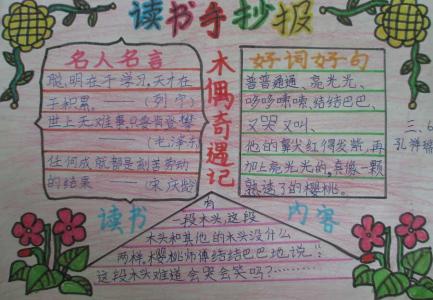 读书手抄报
名人名言
聪明在于学习,天才在
于积累。——(列宁)
世上无难事,只要肯登攀
——(毛泽东)
任何成就都是刻苦劳动
的结果——(宋庆龄)
木偶奇遇记
好词好句
普普通通、亮光光、
哆哆嗦嗦、结结巴巴、
又哭又叫、
他的鼻尖红得发紫,再
加上亮光光的,真像一颗
熟透了的樱桃。
三、6
孔祥
读书
内容
有
一段木头,这段
木头和其他的木头没什么
两样,樱桃师傅结结巴巴地说:
这段木头难道会哭会笑吗?………